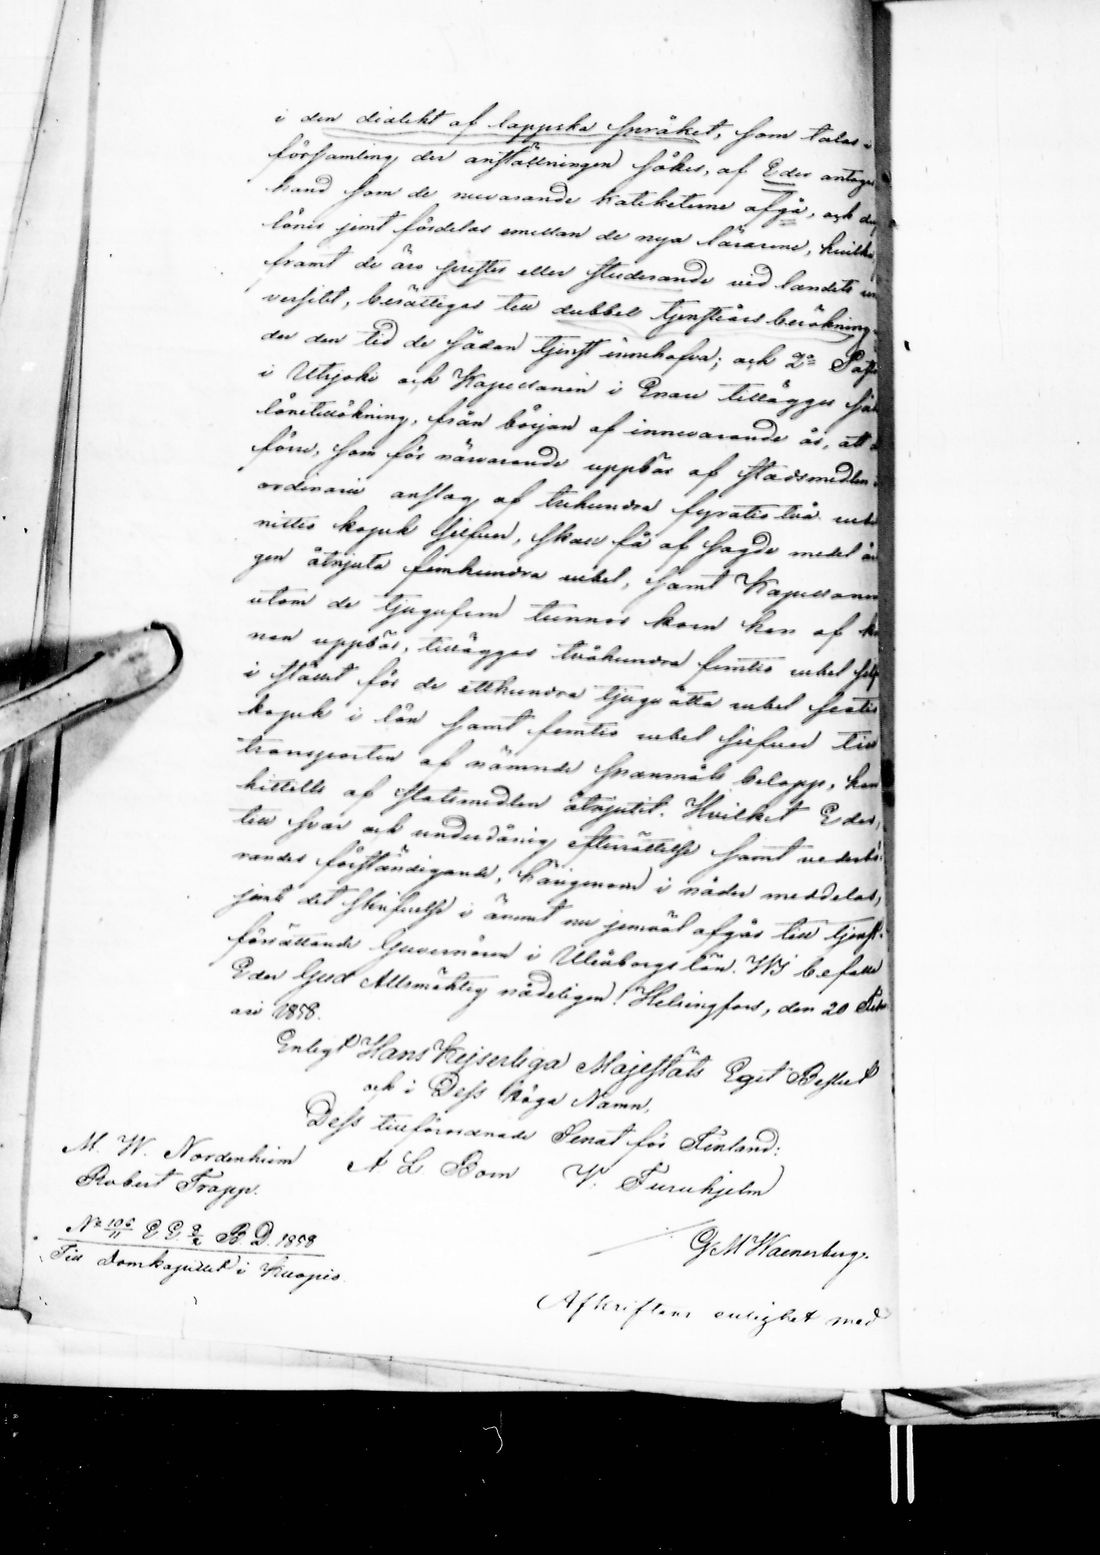 i den dialekt af lappska språket, som talas i
församling der anställningen sökes, af Eder antagas
hand som de nuvarande kateketerne afgå, och
löner jemt fördelas emellan de nya lärarene, hvilka
framt de äro prester eller studerande vid landets uni
versitet, berättigas till dubbel tjensteårs beräkning
der den tid de sådan tjenst innehafva; och 2o Past
i Utsjoki och Kapellanen i Enare tillägges
lönetillökning, från början af innevarande år, att
förre, som för närvarande uppbär af statsmedlen
ordinarie anslag af trehundra fyratio två rubel
nittio kopek silfver, skall få af sagde medel
gen åtnjuta femhundra rubel, samt Kapellanen
utom de tjugufem tunnor korn han af kro
nan uppbär, tillägges tvåhundra femtio rubel silf
i stället för de etthundra tjuguåtta rubel sextio
kopek i lön samt femtio rubel silfver till
transporten af nämnde spanmåls belopp, han
hittills af statsmedlen åtnjutit. Hvilket Eder,
till svar och underdånig efterrättelse samt vederbö-
randes förständigande, härigenom i nåder meddelas,
jemte det skrifvelse i ämnet nu jemväl afgår till tjenst-
förrättande Guvernören i Uleåborgs län. Wi befalle
Eder Gud Allsmäktig nådeligen! Helsingfors, den 20 Febru
ari 1858.
Enligt Hans Kejserliga Majestäts Eget Beslut
och i Dess Höga Namn,
Dess tillförordnade Senat för Finland:
M. W. Nordenheim A L Born V. Furuhjelm
Robert Trapp.
G M Waenerberg.
No 106/11 E. E. 9/2 B D. 1858
Till Domkapitlet i Kuopio.
Afskriftens enlighet med